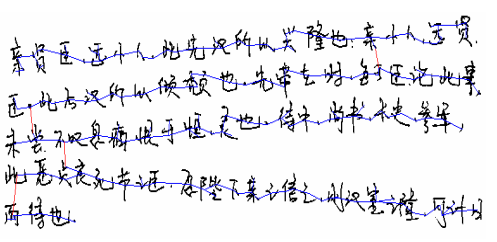 亲贤臣远小人,此先汉所以兴隆也;亲小人,远贤
臣,此后汉所以倾颓也,先帝在时,每与臣论此事,
未尝不叹息痛恨于桓、灵也,侍中、尚书、长史、参军,
此悉贞良死节之臣,愿陛下亲之信之,则汉室之隆,可计日
而待也.